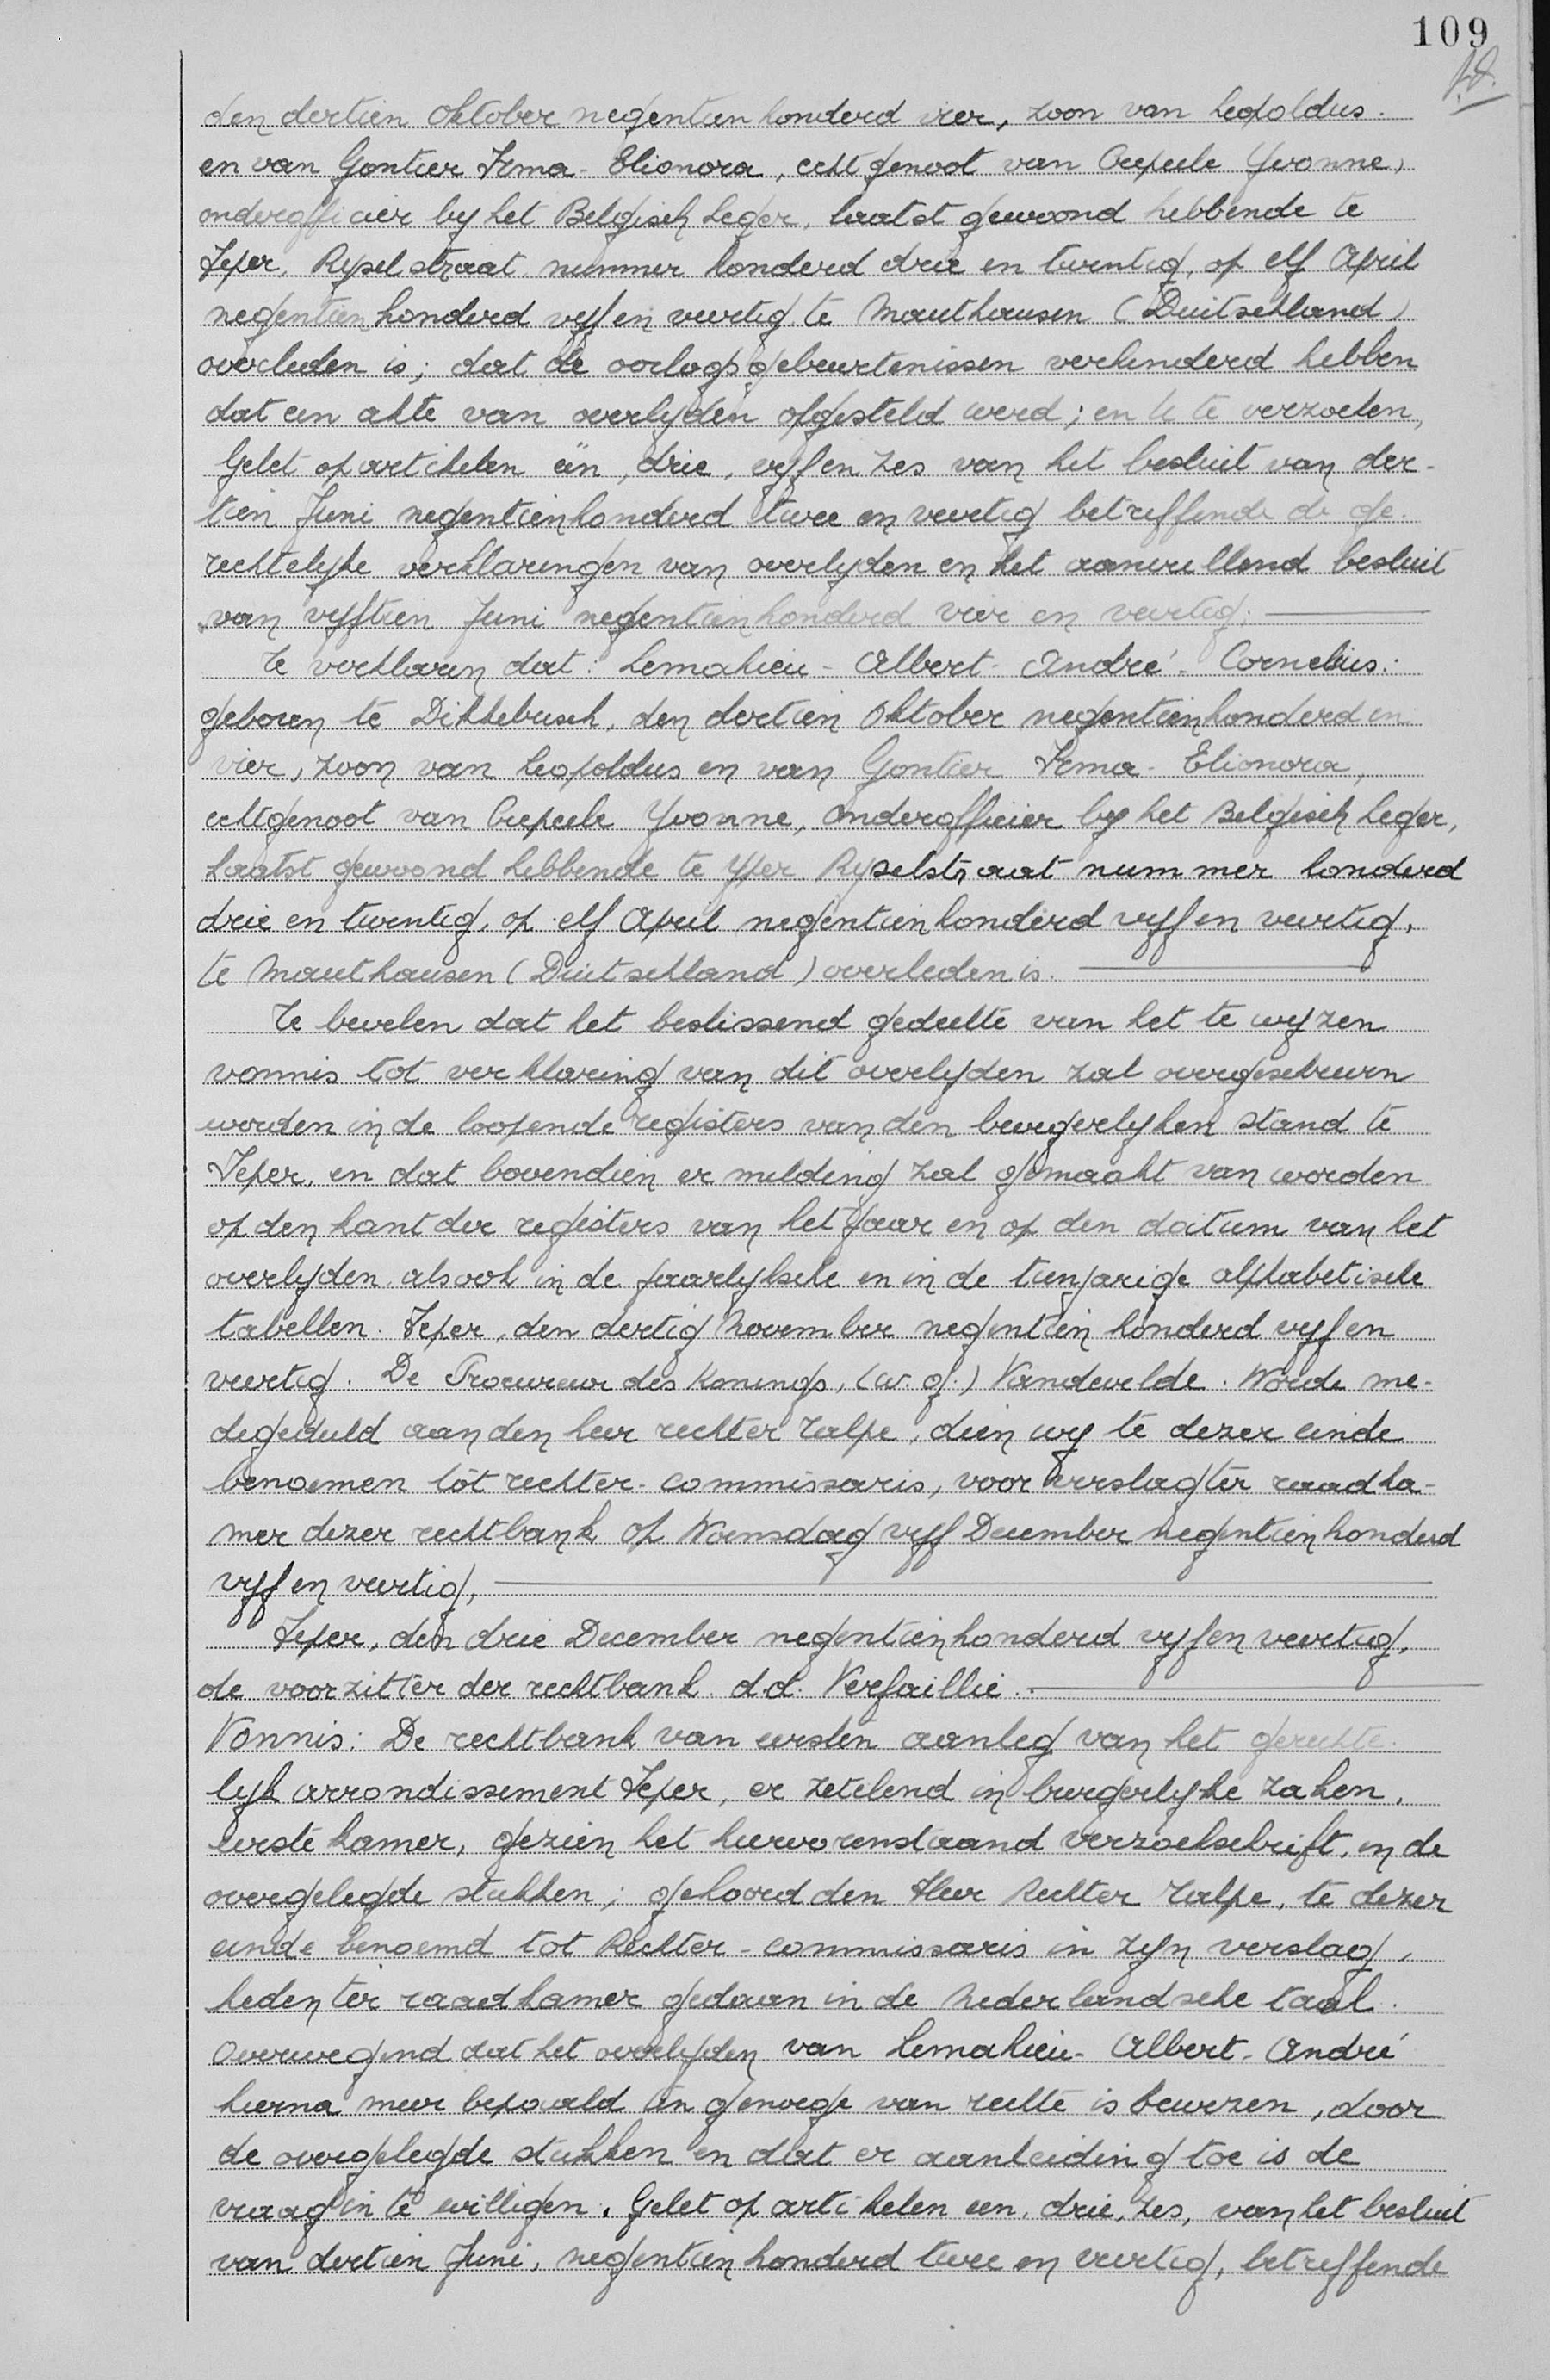 109
den dertien Oktober negentien honderd vier, zoon van Leopoldus.
en van Gontier Irma-Elionora, echtgenoot van Cepeele Yvonne,
onderofficier by het Belgisch Leger, laatst gewoond hebbende te
Ieper, Ryselstraat nummer honderd drie en twintig, op elf April
negentien honderd vyf en veertig te Mauthausen (Duitschland)
overleden is; dat de oorlogsgebeurtenissen verhinderd hebben
dat een akte van overlyden opgesteld werd; en te te verzoeken,
Gelet op artikelen één, drie, vyf en zes van het besluit van der-
tien Juni negentienhonderd twee en veertig betreffende de ge-
rechtelyke verklaringen van overlyden en het aanvullend besluit
van vyftien Juni negentienhonderd vier en veertig.
Te verklaren dat: Lemahieu - Albert - André - Cornelius.:
geboren te Dikkebusch, den dertien Oktober negentienhonderd en
vier, zoon van Leopoldus en van Gontier Irma-Elionora,
echtgenoot van Cepeele Yvonne, Onderofficier by het Belgisch Leger,
Laatst gewoond hebbende te Yper Ryselstraat nummer honderd
drie en twintig, op elf April negentienhonderd vyf en veertig,
te Mauthausen (Duitschland) overleden is.
Te bevelen dat het beslissend gedeelte van het te wyzen
vonnis tot verklaring van dit overlyden zal overgeschreven
worden in de loopende registers van den burgerlyken stand te
Ieper, en dat bovendien er melding zal gemaakt van worden
op den kant der registers van het jaar en op den datum van het
overlyden alsook in de jaarlyksche en in de tienjarige alphabetische
tabellen. Ieper, den dertig November negentien honderd vyf en
veertig. De Procureur des Konings, (w.g.) Vandevelde. Worde me-
degedeeld aan den heer rechter Talpe, dien wy te dezer einde
benoemen tot rechter-commissaris, voor verslag ter raadka-
mer dezer rechtbank op Woensdag vyf December negentienhonderd
vyf en veertig,
Ieper, den drie December negentienhonderd vyf en veertig,
de voorzitter der rechtbank. d.d. Verfaillie.
Vonnis: De rechtbank van eersten aanleg van het gerechte-
lyk arrondissement Ieper, er zetelend in burgerlyke zaken,
eerste kamer, gezien het hiervorenstaand verzoekschrift, en de
overgelegde stukken; gehoord den Heer Rechter Talpe, te dezer
einde benoemd tot Rechter-commissaris in zyn verslag,
heden ter raadkamer gedaan in de Nederlandsche taal.
Overwegend dat het overlyden van Lemahieu - Albert - André
hierna meer bepaald ten genoege van rechte is bewezen, door
de overgelegde stukken en dat er aanleiding toe is de
vraag in te willigen. Gelet op artikelen een, drie, zes, van het besluit
van dertien Juni, negentienhonderd twee en veertig, betreffende